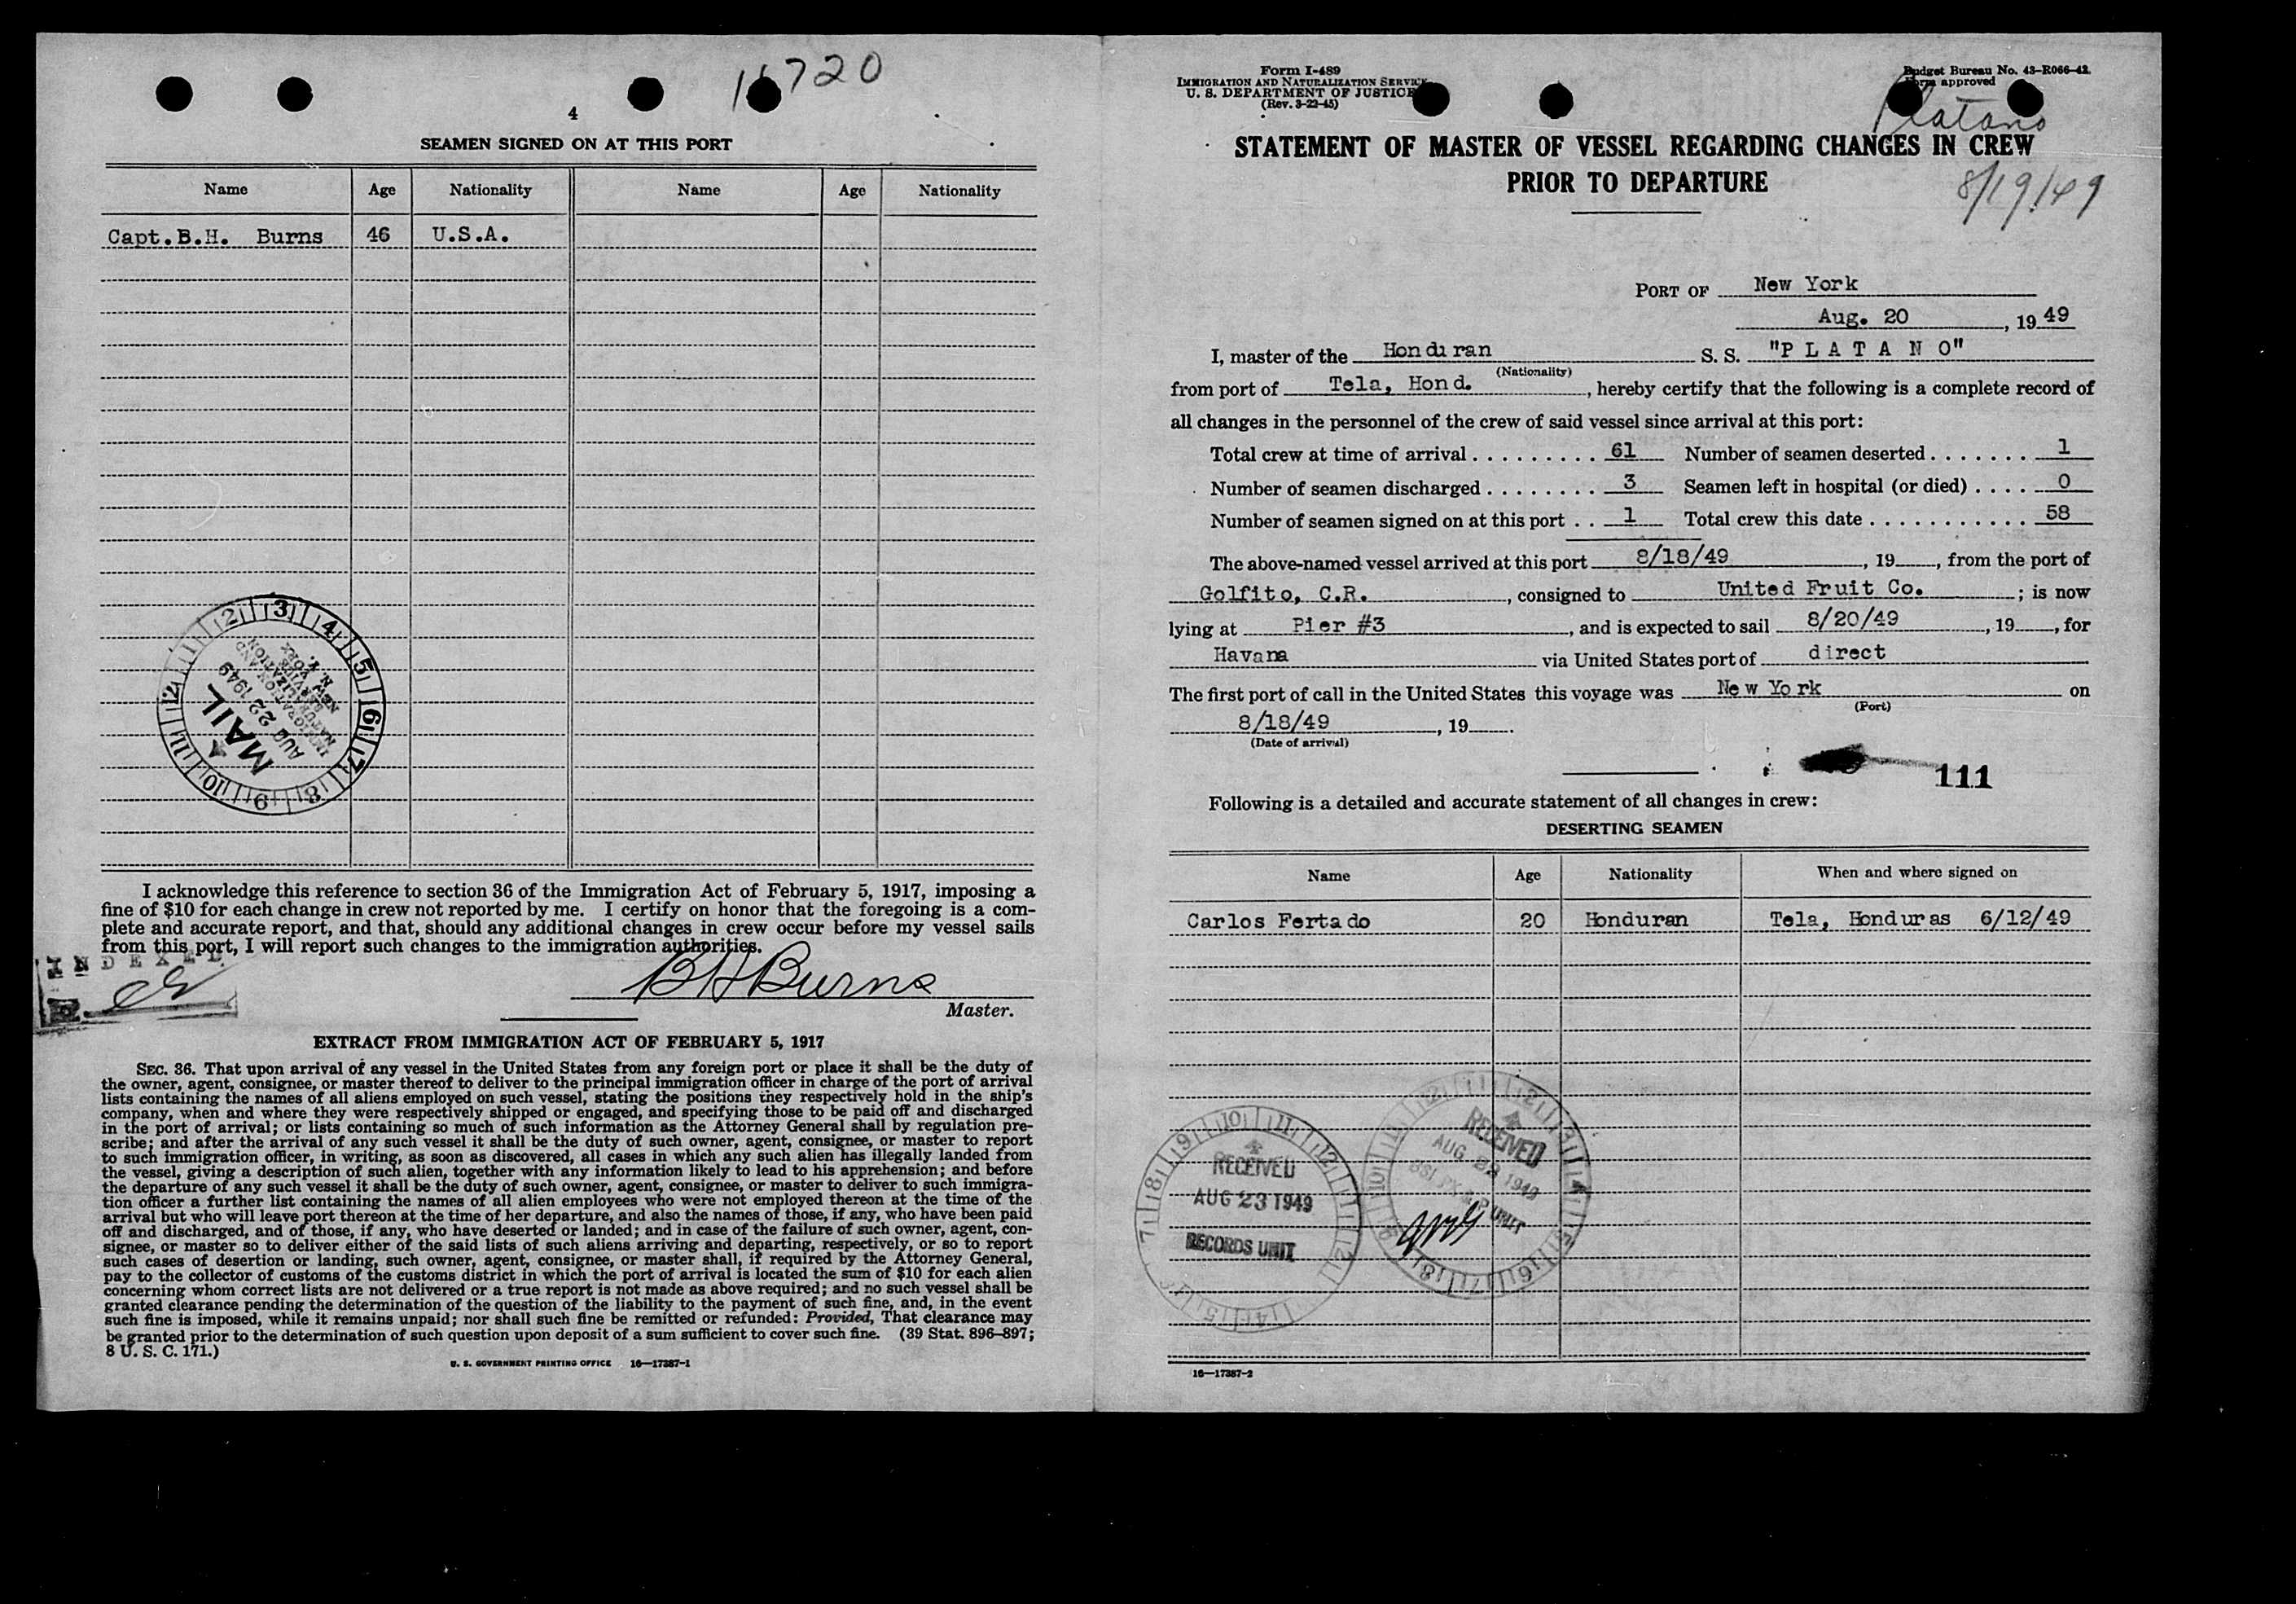 4
SEAMEN SIGNED ON AT THIS PORT
Name Age Nationality Name Age Nationality
Capt. B.H. Burns 46 U.S.A.
MAIL
AUG 22 1949
IMMIGRATION AND
NATURALIZATION
SERVICE
NEW YORK
N. Y.
I acknowledge this reference to section 36 of the Immigration Act of February 5, 1917, imposing a
fine of $10 for each change in crew not reported by me. I certify on honor that the foregoing is a com-
plete and accurate report, and that, should any additional changes in crew occur before my vessel sails
from this port, I will report such changes to the immigration authorities.
INDEXED
BH Burns
Master.
EXTRACT FROM IMMIGRATION ACT OF FEBRUARY 5, 1917
SEC. 36. That upon arrival of any vessel in the United States from any foreign port or place it shall be the duty of
the owner, agent, consignee, or master thereof to deliver to the principal immigration officer in charge of the port of arrival
lists containing the names of all aliens employed on such vessel, stating the positions they respectively hold in the ship's
company, when and where they were respectively shipped or engaged, and specifying those to be paid off and discharged
in the port of arrival; or lists containing so much of such information as the Attorney General shall by regulation pre-
scribe; and after the arrival of any such vessel it shall be the duty of such owner, agent, consignee, or master to report
to such immigration officer, in writing, as soon as discovered, all cases in which any such alien has illegally landed from
the vessel, giving a description of such alien, together with any information likely to lead to his apprehension; and before
the departure of any such vessel it shall be the duty of such owner, agent, consignee, or master to deliver to such immigra-
tion officer a further list containing the names of all alien employees who were not employed thereon at the time of the
arrival but who will leave port thereon at the time of her departure, and also the names of those, if any, who have been paid
off and discharged, and of those, if any, who have deserted or landed; and in case of the failure of such owner, agent, con-
signee, or master so to deliver either of the said lists of such aliens arriving and departing, respectively, or so to report
such cases of desertion or landing, such owner, agent, consignee, or master shall, if required by the Attorney General,
pay to the collector of customs of the customs district in which the port of arrival is located the sum of $10 for each alien
concerning whom correct lists are not delivered or a true report is not made as above required; and no such vessel shall be
granted clearance pending the determination of the question of the liability to the payment of such fine, and, in the event
such fine is imposed, while it remains unpaid; nor shall such fine be remitted or refunded: Provided, That clearance may
be granted prior to the determination of such question upon deposit of a sum sufficient to cover such fine. (39 Stat. 896–897;
8 U. S. C. 171.)
U. S. GOVERNMENT PRINTING OFFICE 16—17387-1
Form I-489
IMMIGRATION AND NATURALIZATION SERVICE
U. S. DEPARTMENT OF JUSTICE
(Rev. 3-22-45)
Budget Bureau No. 43-R066-42.
Form approved
Platano
STATEMENT OF MASTER OF VESSEL REGARDING CHANGES IN CREW
PRIOR TO DEPARTURE
8/19/49
PORT OF New York
Aug. 20, 1949
I, master of the Honduran S. S. "P L A T A N O"
(Nationality)
from port of Tela, Hond., hereby certify that the following is a complete record of
all changes in the personnel of the crew of said vessel since arrival at this port:
Total crew at time of arrival . . . . . . . . . 61 Number of seamen deserted . . . . . . . 1
Number of seamen discharged . . . . . . . . 3 Seamen left in hospital (or died) . . . . 0
Number of seamen signed on at this port . . 1 Total crew this date . . . . . . . . . . . . 58
The above-named vessel arrived at this port 8/18/49, 19, from the port of
Golfito, C.R., consigned to United Fruit Co.; is now
lying at Pier #3, and is expected to sail 8/20/49, 19, for
Havana via United States port of direct
The first port of call in the United States this voyage was New York on
(Port)
8/18/49, 19.
(Date of arrival)
111
Following is a detailed and accurate statement of all changes in crew:
DESERTING SEAMEN
Name Age Nationality When and where signed on
Carlos Fertado 20 Honduran Tela, Honduras 6/12/49
RECEIVED
AUG 23 1949
RECORDS UNIT
RECEIVED
AUG 1949
UNIT
16—17387-2